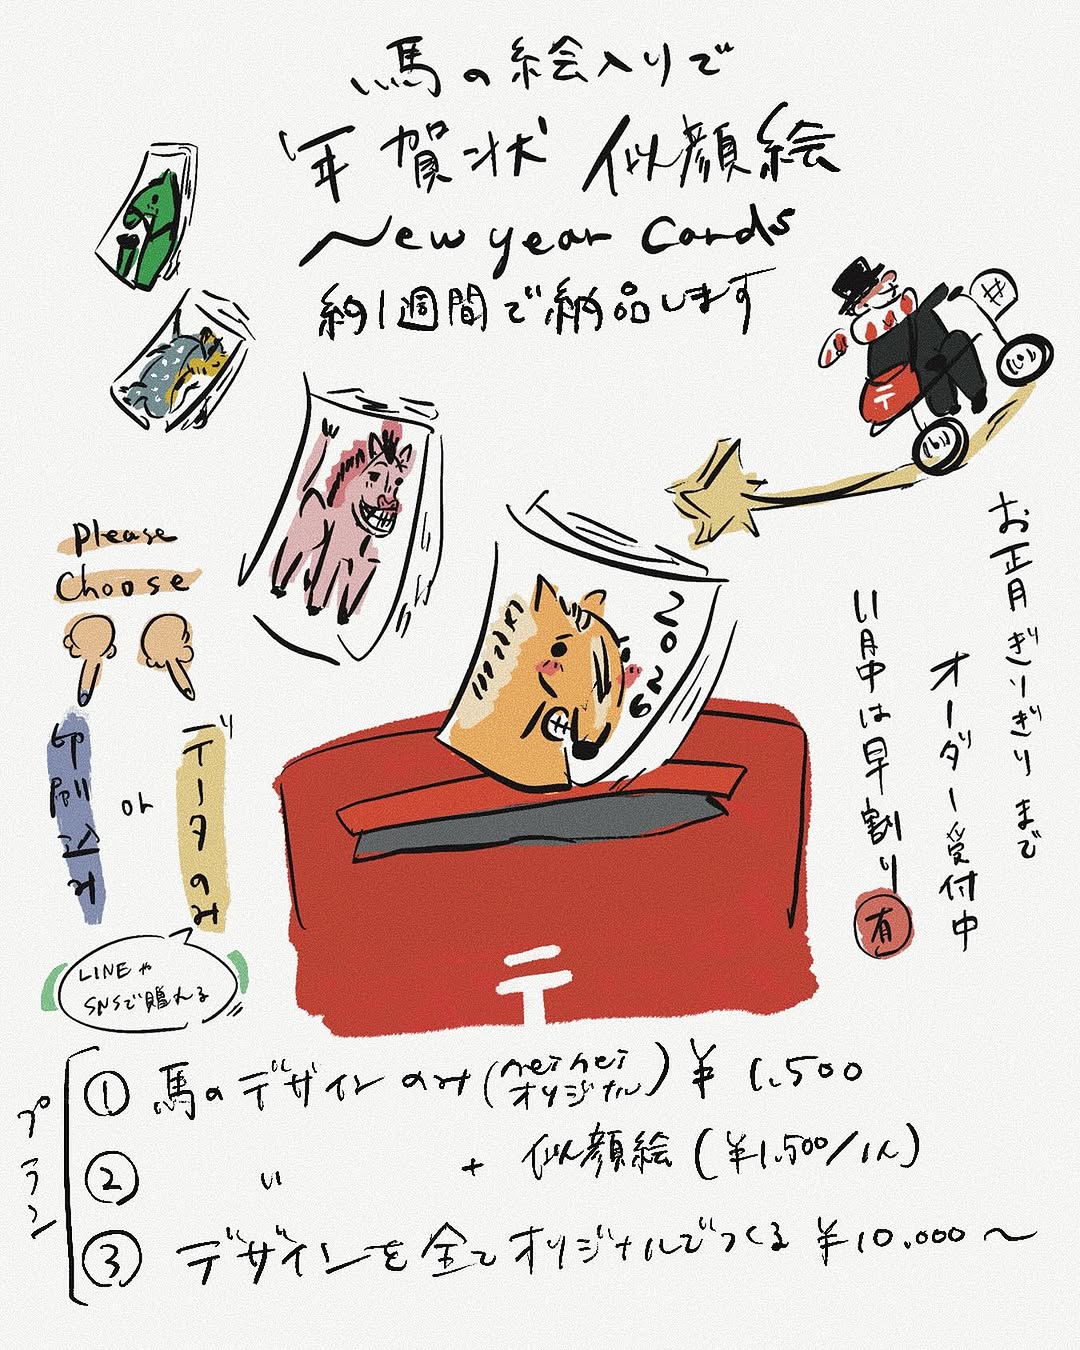 馬の絵入りで
年賀状 似顔絵
New year Cards
約1週間で納品します
お正月ぎりぎりまで
オーダー受付中
11月中は早割り有
2026
please
Choose
印刷込み
or
データのみ
LINEや
SNSで贈れる
プラン
① 馬のデザインのみ (neinei オリジナル) ¥1,500
② 〃 + 似顔絵 (¥1,500/1人)
③ デザインを全てオリジナルでつくる ¥10,000〜